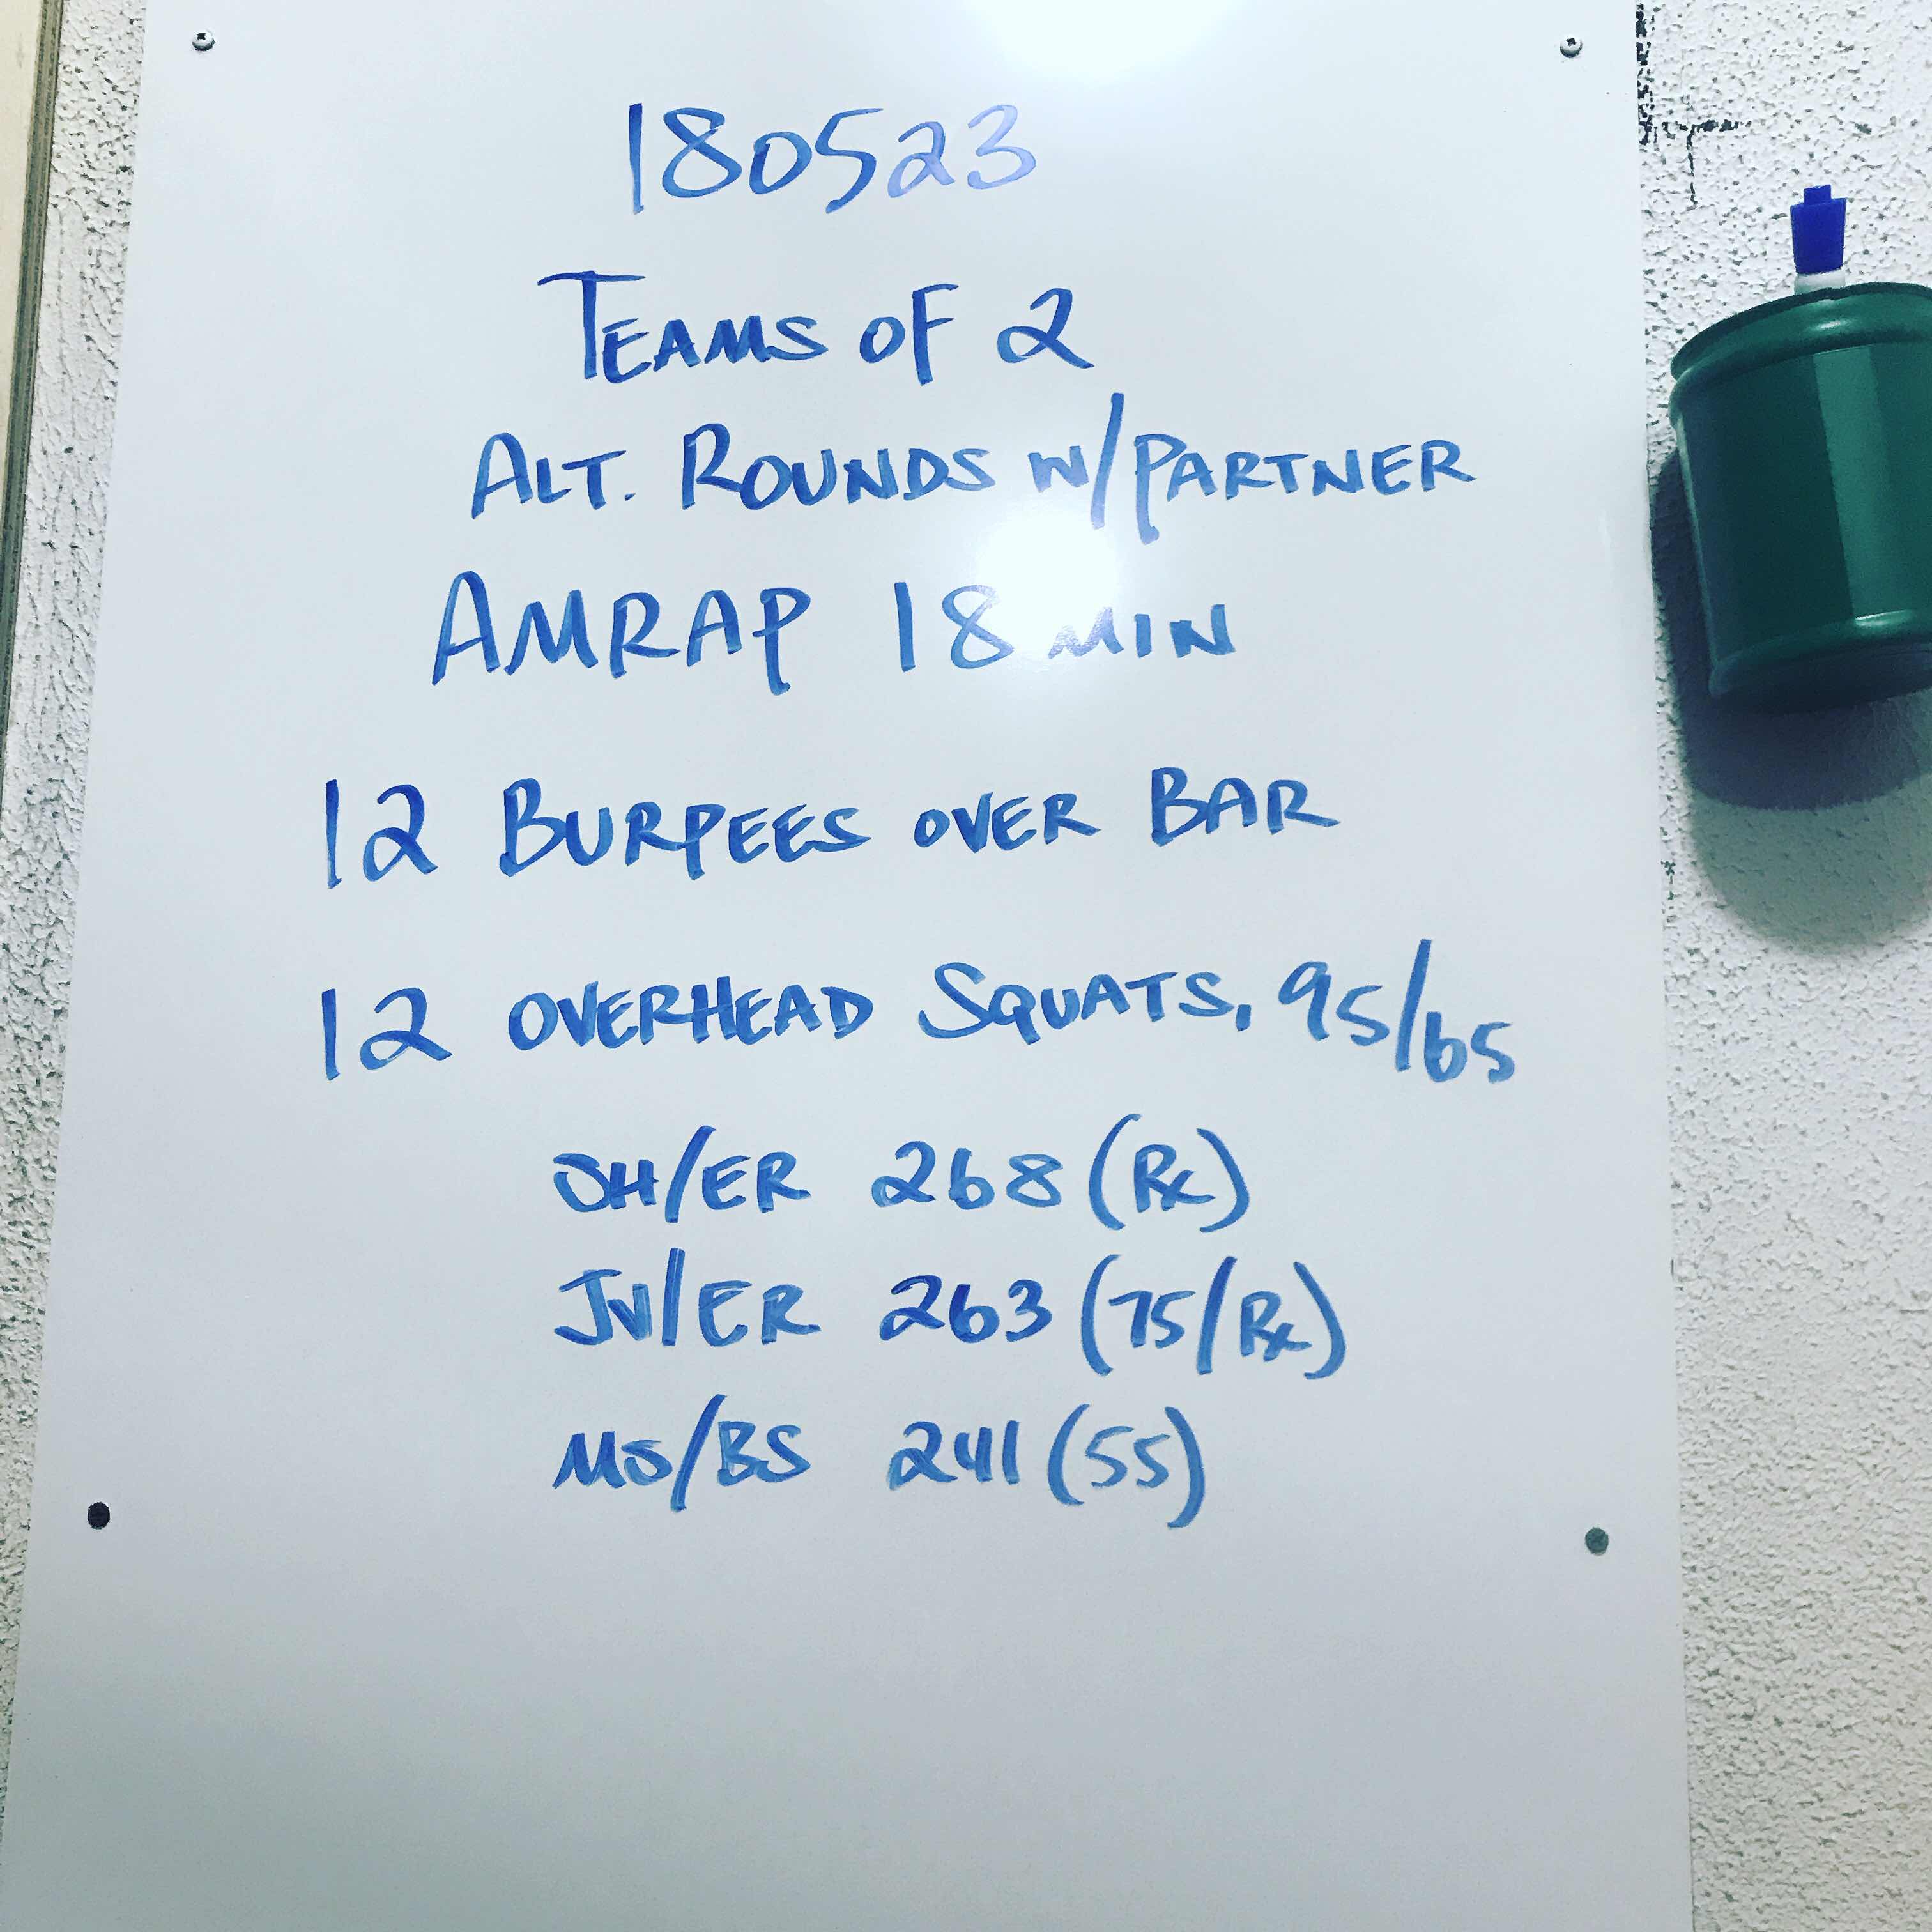 180523
TEAMS OF 2
ALT. ROUNDS W/PARTNER
AMRAP 18 MIN
12 BURPEES OVER BAR
12 OVERHEAD SQUATS, 95/65
SH/ER 268 (Rx)
JV/ER 263 (75/Rx)
MS/BS 241 (55)